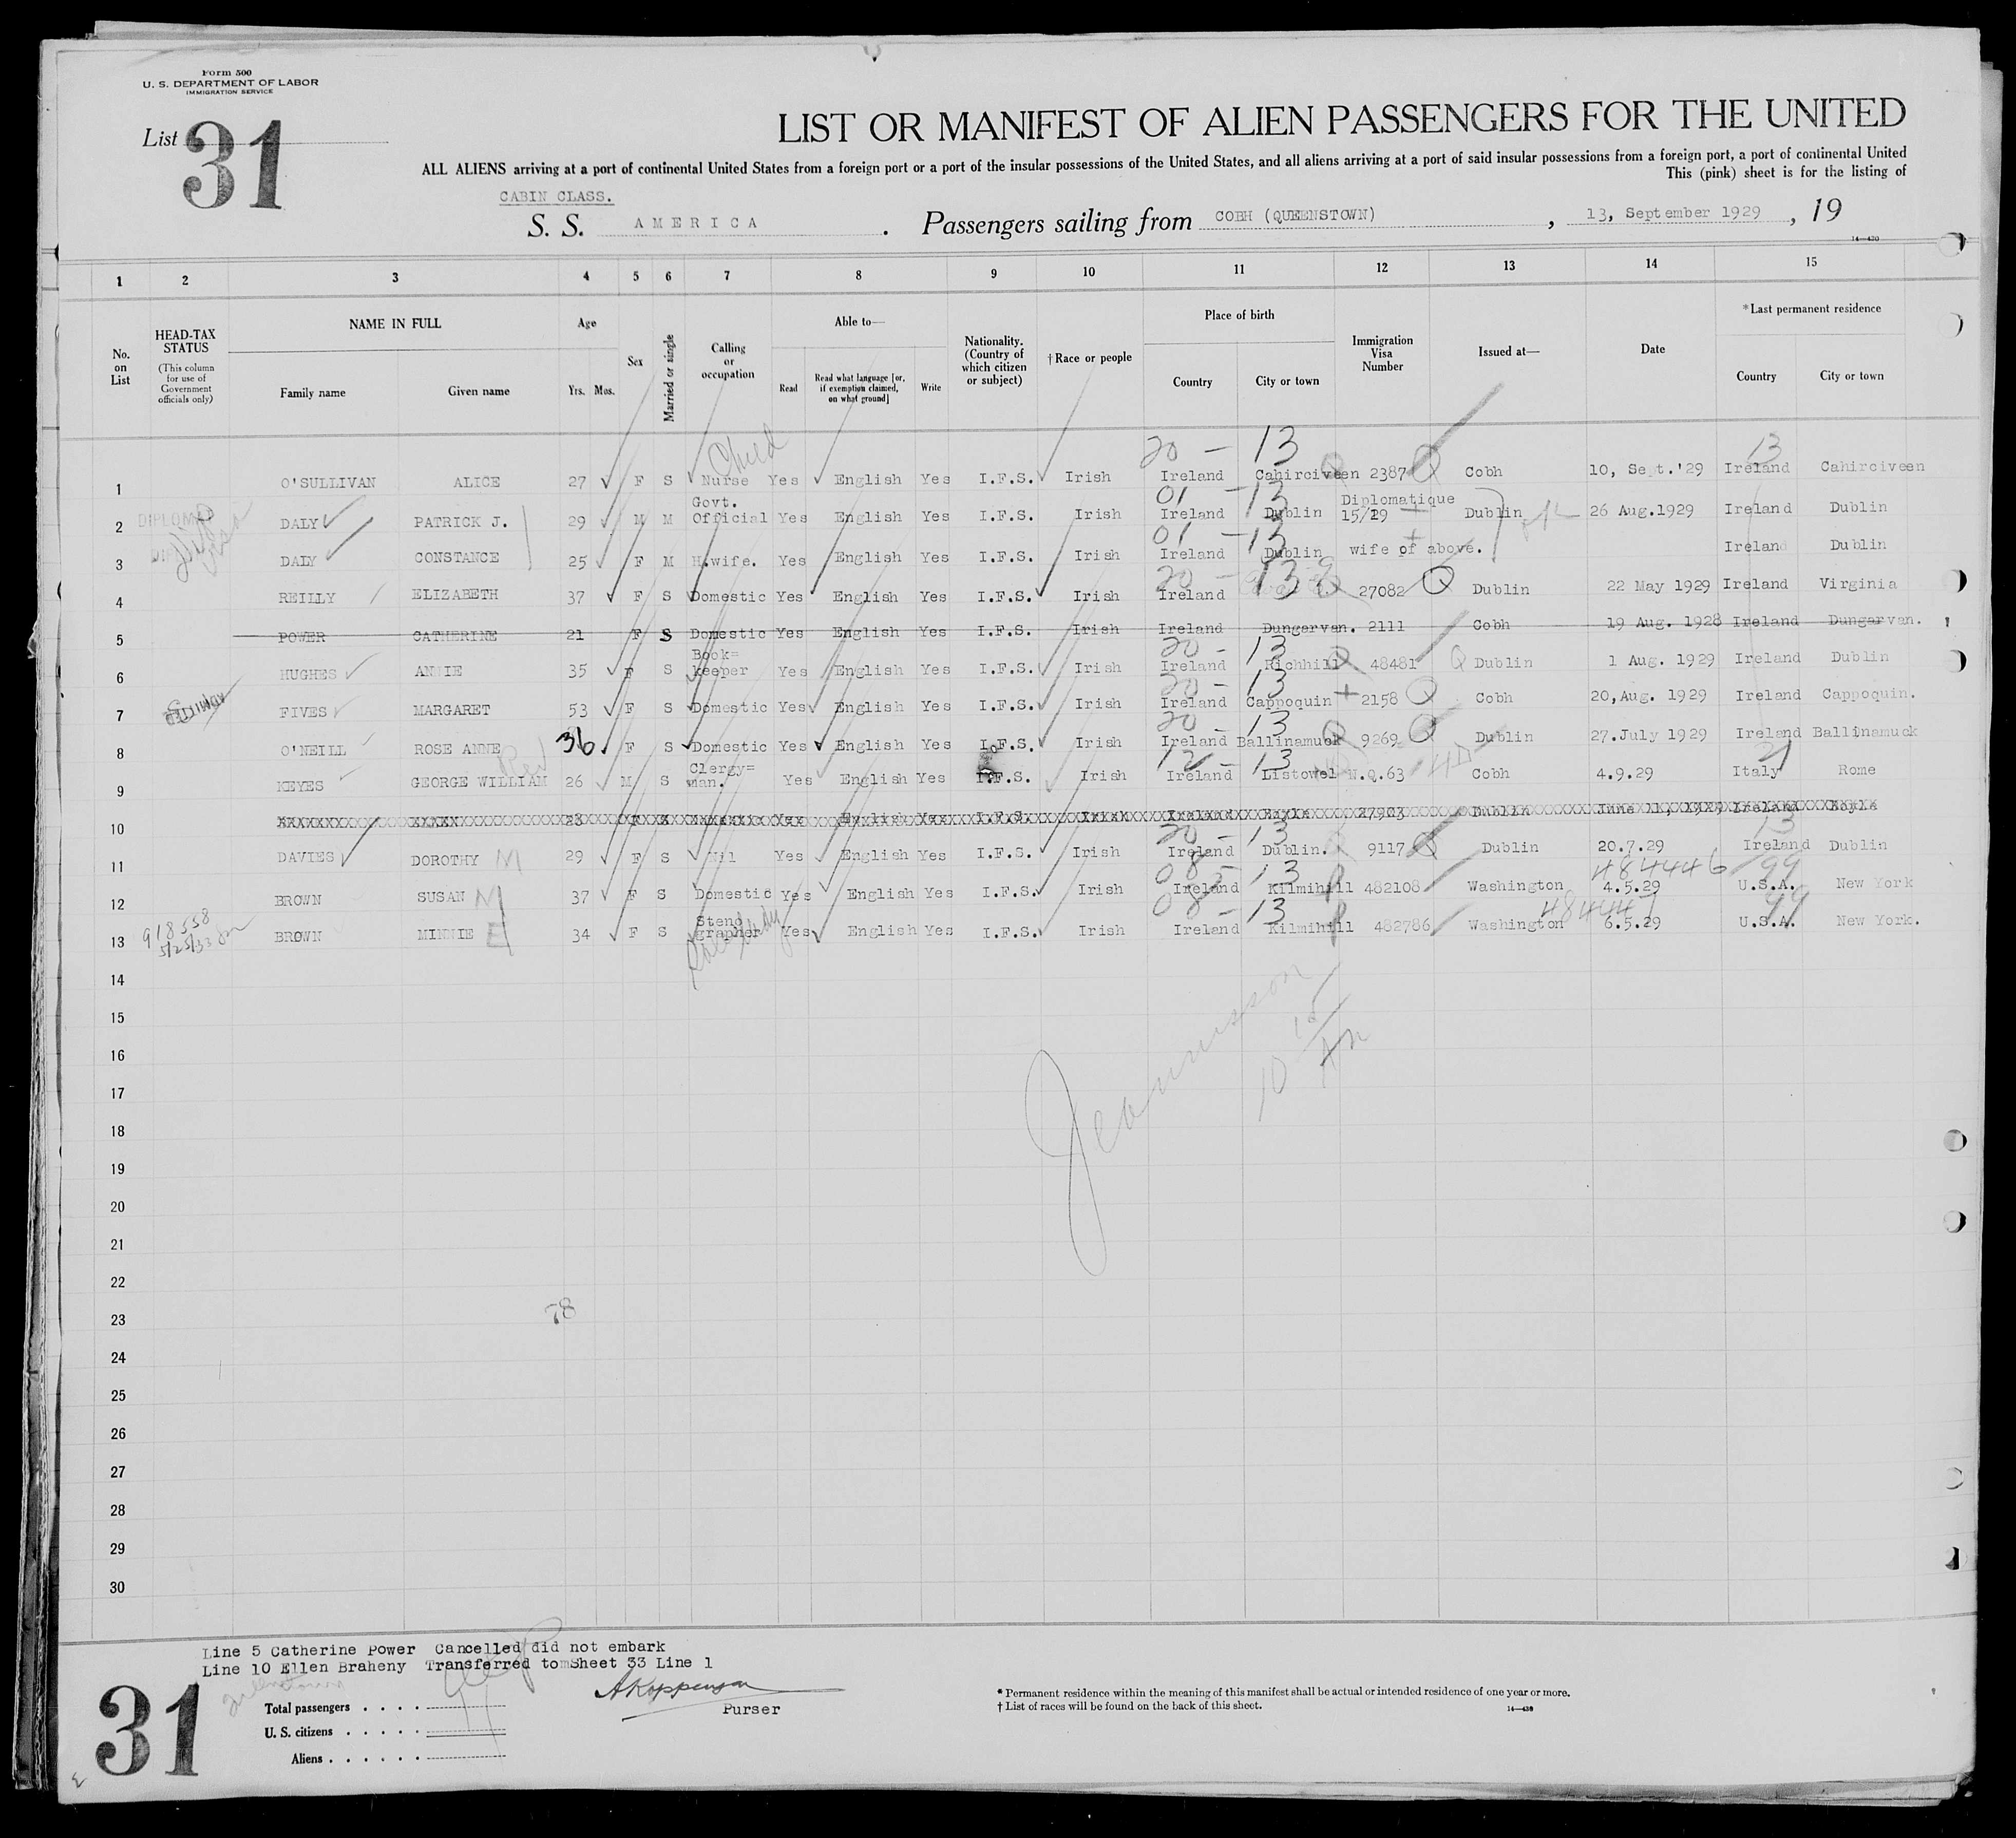 Form 500
U. S. DEPARTMENT OF LABOR
IMMIGRATION SERVICE
List 31
LIST OR MANIFEST OF ALIEN PASSENGERS FOR THE UNITED
ALL ALIENS arriving at a port of continental United States from a foreign port or a port of the insular possessions of the United States, and all aliens arriving at a port of said insular possessions from a foreign port, a port of continental United
This (pink) sheet is for the listing of
CABIN CLASS.
S. S. AMERICA . Passengers sailing from COBH (QUEENSTOWN) , 13, September 1929 , 19
14—430
1 2 3 4 5 6 7 8 9 10 11 12 13 14 15
No. on List
HEAD-TAX STATUS
(This column for use of Government officials only)
NAME IN FULL
Family name Given name
Age
Yrs. Mos.
Sex
Married or single
Calling or occupation
Able to—
Read
Read what language [or, if exemption claimed, on what ground]
Write
Nationality. (Country of which citizen or subject)
†Race or people
Place of birth
Country City or town
Immigration Visa Number
Issued at—
Date
*Last permanent residence
Country City or town
Child
20 - 13 13
1 O'SULLIVAN ALICE 27 F S Nurse Yes English Yes I.F.S. Irish Ireland Cahirciveen 2387 Q Cobh 10, Sept.'29 Ireland Cahirciveen
01 - 13
2 DIPLOMAT DALY PATRICK J. 29 M M Govt. Official Yes English Yes I.F.S. Irish Ireland Dublin Diplomatique 15/29 Dublin 26 Aug.1929 Ireland Dublin
01 - 13
3 DALY CONSTANCE 25 F M H.wife. Yes English Yes I.F.S. Irish Ireland Dublin wife of above. Ireland Dublin
20 - 13
4 REILLY ELIZABETH 37 F S Domestic Yes English Yes I.F.S. Irish Ireland 27082 Q Dublin 22 May 1929 Ireland Virginia
5 POWER CATHERINE 21 F S Domestic Yes English Yes I.F.S. Irish Ireland Dungarvan. 2111 Cobh 19 Aug. 1928 Ireland Dungarvan.
20 - 13
6 HUGHES ANNIE 35 F S Book=keeper Yes English Yes I.F.S. Irish Ireland Richhill 48481 Q Dublin 1 Aug. 1929 Ireland Dublin
20 - 13
7 FIVES MARGARET 53 F S Domestic Yes English Yes I.F.S. Irish Ireland Cappoquin 2158 Q Cobh 20,Aug. 1929 Ireland Cappoquin.
20 - 13
8 O'NEILL ROSE ANNE 36 F S Domestic Yes English Yes I.F.S. Irish Ireland Ballinamuck 9269 Q Dublin 27.July 1929 Ireland Ballinamuck
Rev 12 - 13 4D 21
9 KEYES GEORGE WILLIAM 26 M S Clergy=man. Yes English Yes I.F.S. Irish Ireland Listowel N.Q.63 Cobh 4.9.29 Italy Rome
10 23 F S Domestic Yes English Yes I.F.S. Irish Ireland Boyle 27903 Dublin June 11, 1929 Ireland Boyle
20 - 13 13
11 DAVIES DOROTHY M 29 F S Nil Yes English Yes I.F.S. Irish Ireland Dublin. 9117 Q Dublin 20.7.29 Ireland Dublin
08 - 13 484446 99
12 BROWN SUSAN M 37 F S Domestic Yes English Yes I.F.S. Irish Ireland Kilmihill 482108 Washington 4.5.29 U.S.A. New York
08 - 13 484447 99
13 918558 5/25/33 BROWN MINNIE E 34 F S Stenographer Yes English Yes I.F.S. Irish Ireland Kilmihill 482786 Washington 6.5.29 U.S.A. New York.
14
15
16
17
18
19
20
21
22
23 78
24
25
26
27
28
29
30
Line 5 Catherine Power Cancelled did not embark
Line 10 Ellen Braheny Transferred to Sheet 33 Line 1
31
Total passengers
U. S. citizens
Aliens
Purser
* Permanent residence within the meaning of this manifest shall be actual or intended residence of one year or more.
† List of races will be found on the back of this sheet.
14—430